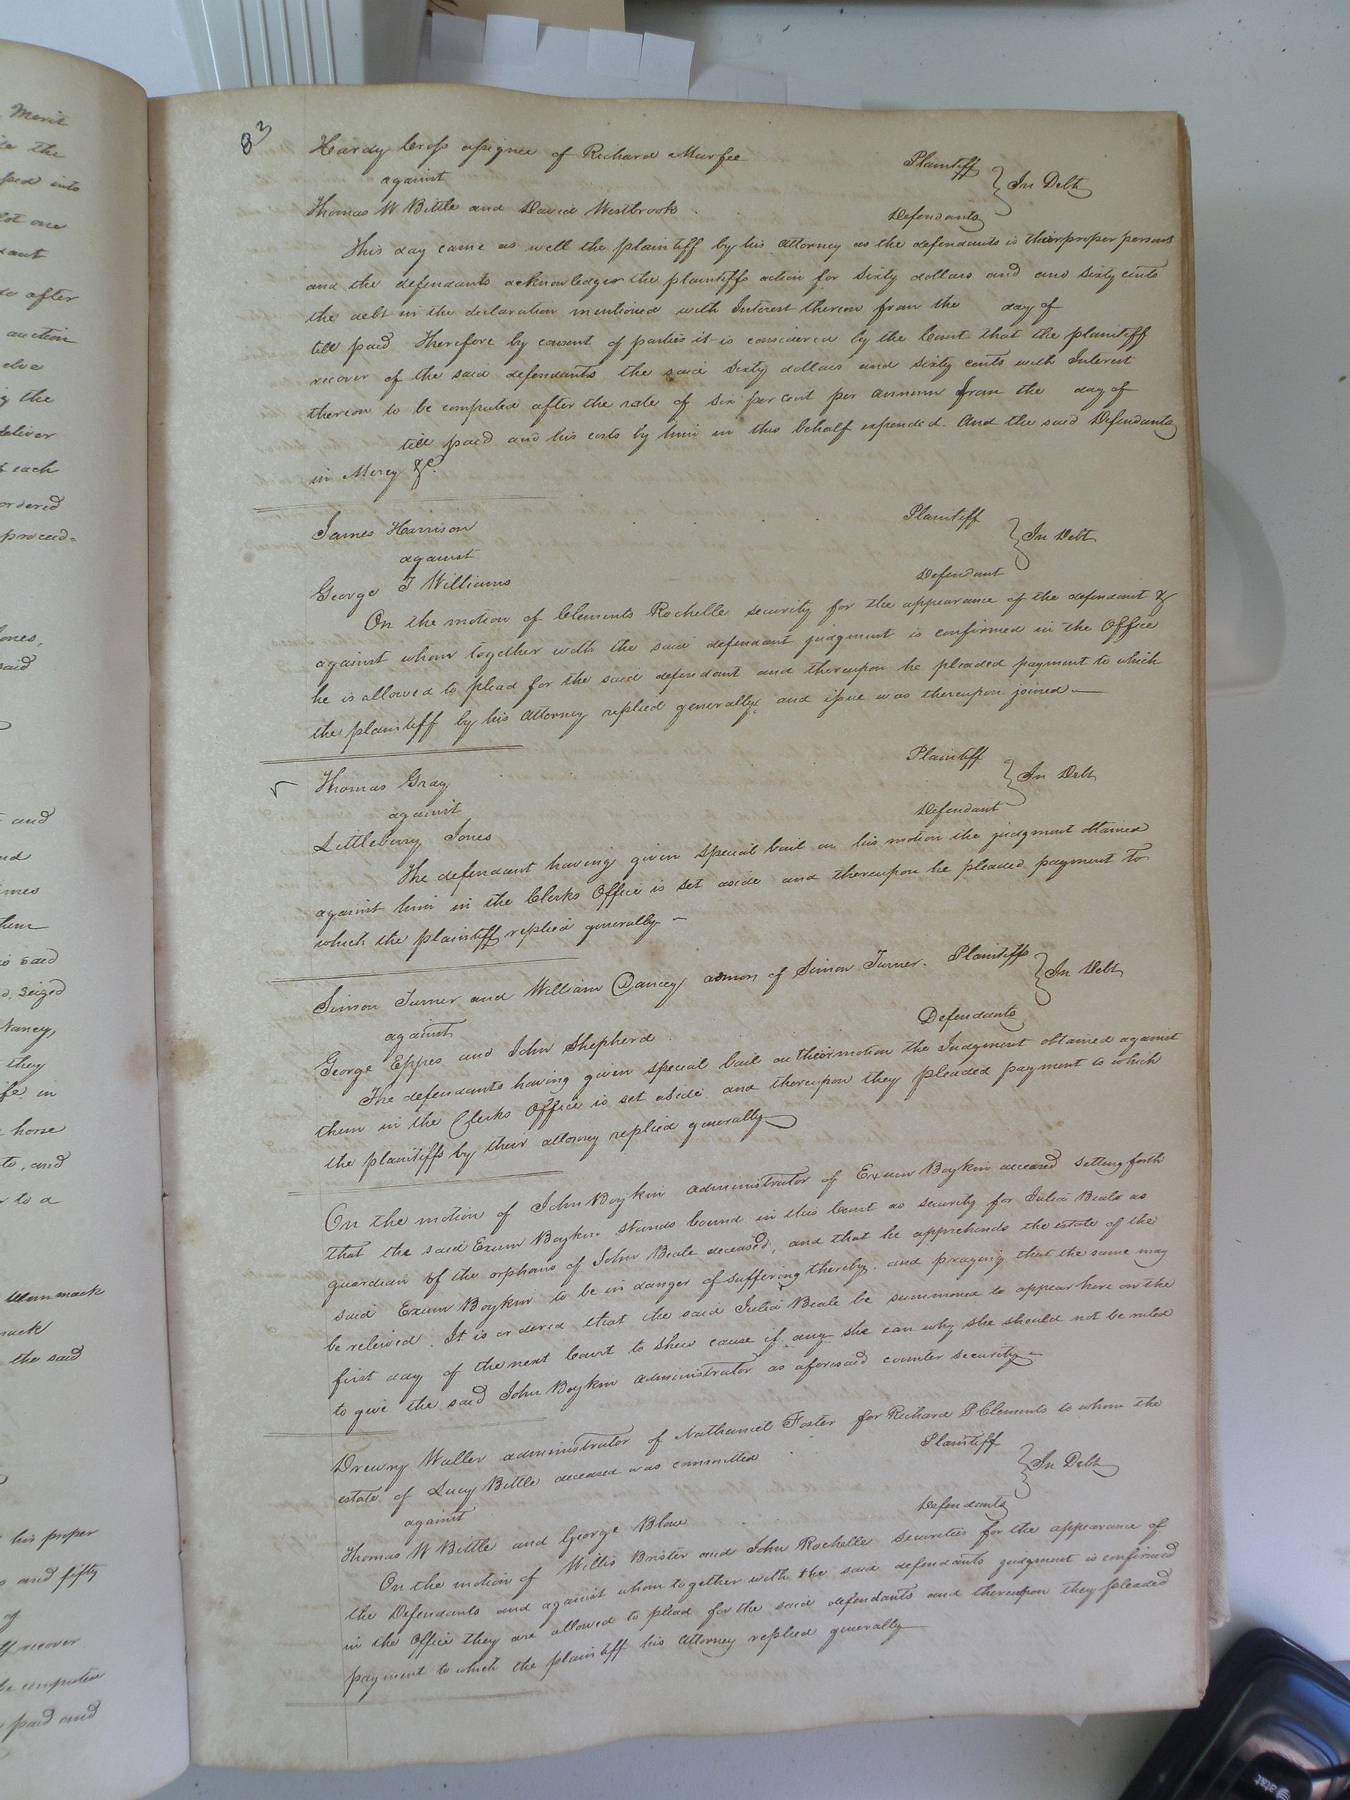 83
Hardy Cross assignee of Richard Murfee Plaintiff
against } In Debt
Thomas W Bittle and David Westbrook Defendants
This day came as well the plaintiff by his Attorney as the defendants in their proper persons
and the defendants acknowledges the plaintiffs action for Sixty dollars and and Sixty cents
the debt in the declaration mentioned with Interest thereon from the day of
till paid Therefore by consent of parties it is considered by the Court that the plaintiff
recover of the said defendants the said Sixty dollars and Sixty cents with Interest
thereon to be computed after the rate of six per cent per annum from the day of
till paid and his costs by him in this behalf expended. And the said Defendants
in Mercy &c.
James Harrison Plaintiff
against } In Debt
George T Williams Defendant
On the motion of Clements Rochelle security for the appearance of the defendant &
against whom together with the said defendant judgment is confirmed in the Office
he is allowed to plead for the said defendant and thereupon he pleaded payment to which
the plaintiff by his Attorney replied generally, and issue was thereupon joined —
Thomas Gray Plaintiff
against } In Debt
Littleberry Jones Defendant
The defendant having given special bail on his motion the judgment obtained
against him in the Clerks Office is set aside and thereupon he pleaded payment to
which the plaintiff replied generally —
Simon Turner and William Dancey admors of Simon Turner. Plaintiffs
against } In Debt
George Eppes and John Shepherd. Defendants
The defendants having given special bail on their motion the Judgment obtained against
them in the Clerks Office is set aside and thereupon they pleaded payment to which
the plaintiffs by their attorney replied generally
On the motion of John Boykin administrator of Exum Boykin deceased setting forth
that the said Exum Boykin stands bound in this Court as security for Julia Beale as
guardian of the orphans of John Beale deceased, and that he apprehends the estate of the
said Exum Boykin to be in danger of suffering thereby, and praying that the same may
be releived. It is ordered that the said Julia Beale be summoned to appear here on the
first day of the next Court to shew cause if any she can why she should not be ruled
to give the said John Boykin administrator as aforesaid counter security —
Drewry Waller administrator of Nathaniel Foster for Richard P Clements to whom the
estate of Lucy Bittle deceased was committed Plaintiff
against } In Debt
Thomas W Bittle and George Blow Defendants
On the motion of Willis Brister and John Rochelle securities for the appearance of
the Defendants and against whom together with the said defendants judgment is confirmed
in the Office they are allowed to plead for the said defendants and thereupon they pleaded
payment to which the plaintiff his Attorney replied generally